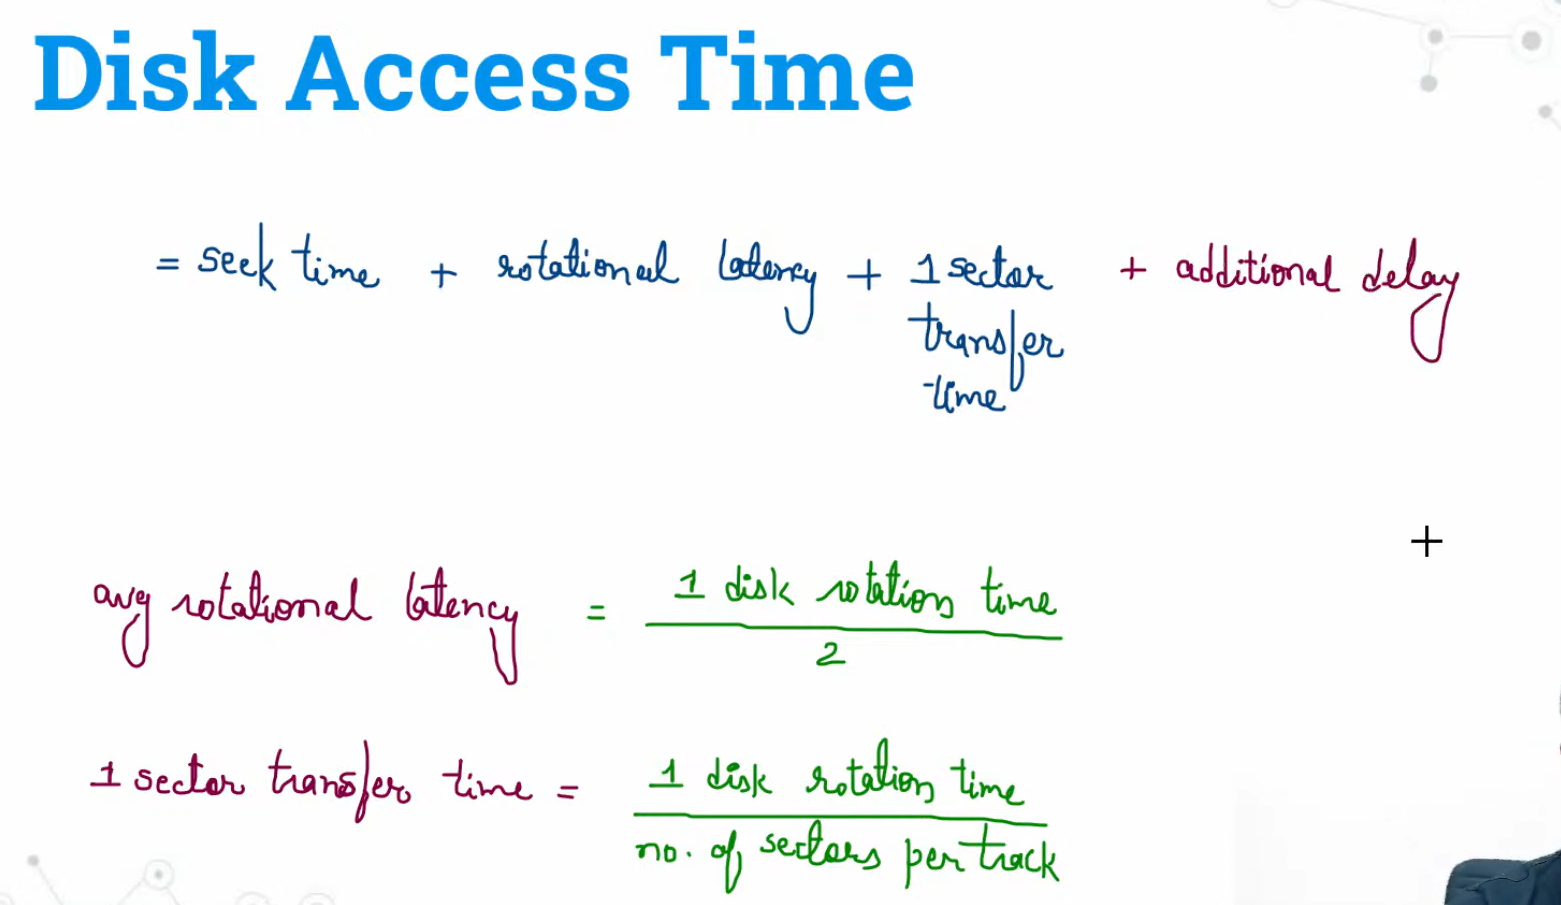 Disk Access Time
= seek time + rotational latency + 1 sector + additional delay
transfer
time
avg rotational latency = 1 disk rotation time
2
1 sector transfer time = 1 disk rotation time
no. of sectors per track